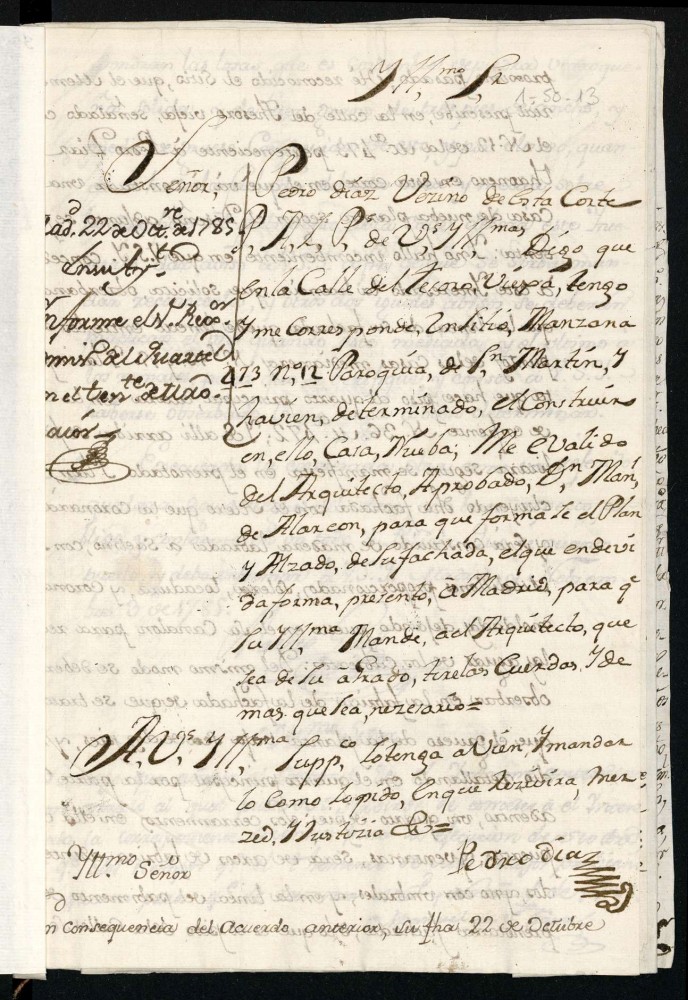 Yll,mo Sr
1-50-13
Señor,
Mad.d 22 de Oct.re de 1785
En su Ay.to
Informe el S.r Rexor
Comis.o del Quartel
con el then.te de Mro.
maior
Pedro Díaz Vezino de esta Corte
P, A, L, P,s de V,s Yll,mas Digo que
en la Calle del Tesoro Viexa, tengo
y me Corresponde, Un sitio, Manzana
473 N,o 12 Paroquia, de S,n Martin, y
havien, determinado, el Construir
en, ello, Casa, Nueba; Me e Valido
del Arquitecto, Aprobado, D,n Man,l
de Alarcon, para que formase el Plan
y Alzado, de su fachada, el que en devi
da forma, presento, â Madrid, para q.e
Su Yll,ma Mande, a el Arquitecto, que
sea de su âgrado, tire las Cuerdas y de
mas que sea, nezesario =
A, V,s Yll,ma Supp,co lo tenga a vien, y mandar
lo Como lo pido, en que Rezivira, Mer
zed, y Justizia &=
Pedro Diaz
Yll,mo Señor
En consequencia del Acuerdo anterior, su fha 22 de Octubre